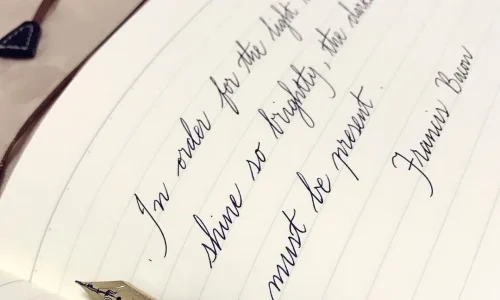 In order for the light
shine so brightly, the dark
must be present.
Francis Bacon